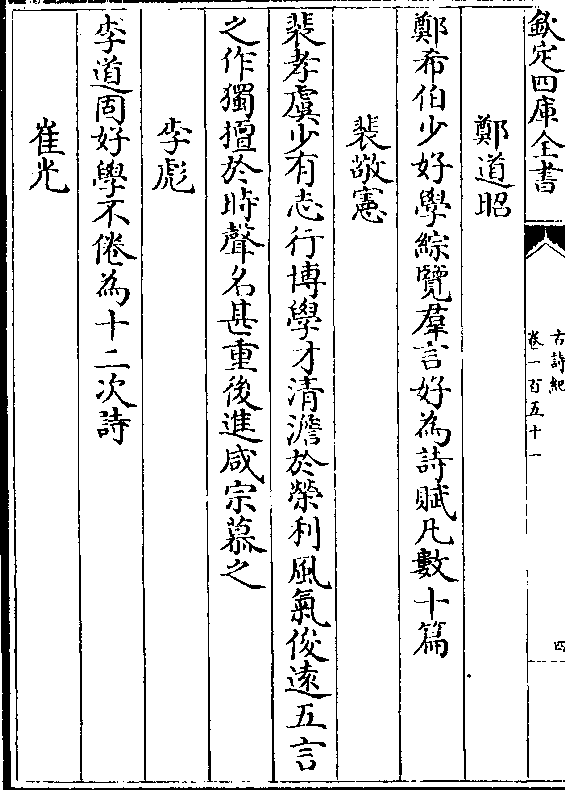 欽定四庫全書
古詩紀
卷一百五十一
四
鄭道昭
鄭希伯少好學綜覽羣言好為詩賦凡數十篇
裴敬憲
裴孝虞少有志行博學才清澹於榮利風氣俊遠五言
之作獨擅於時聲名甚重後進咸宗慕之
李彪
李道固好學不倦為十二次詩
崔光